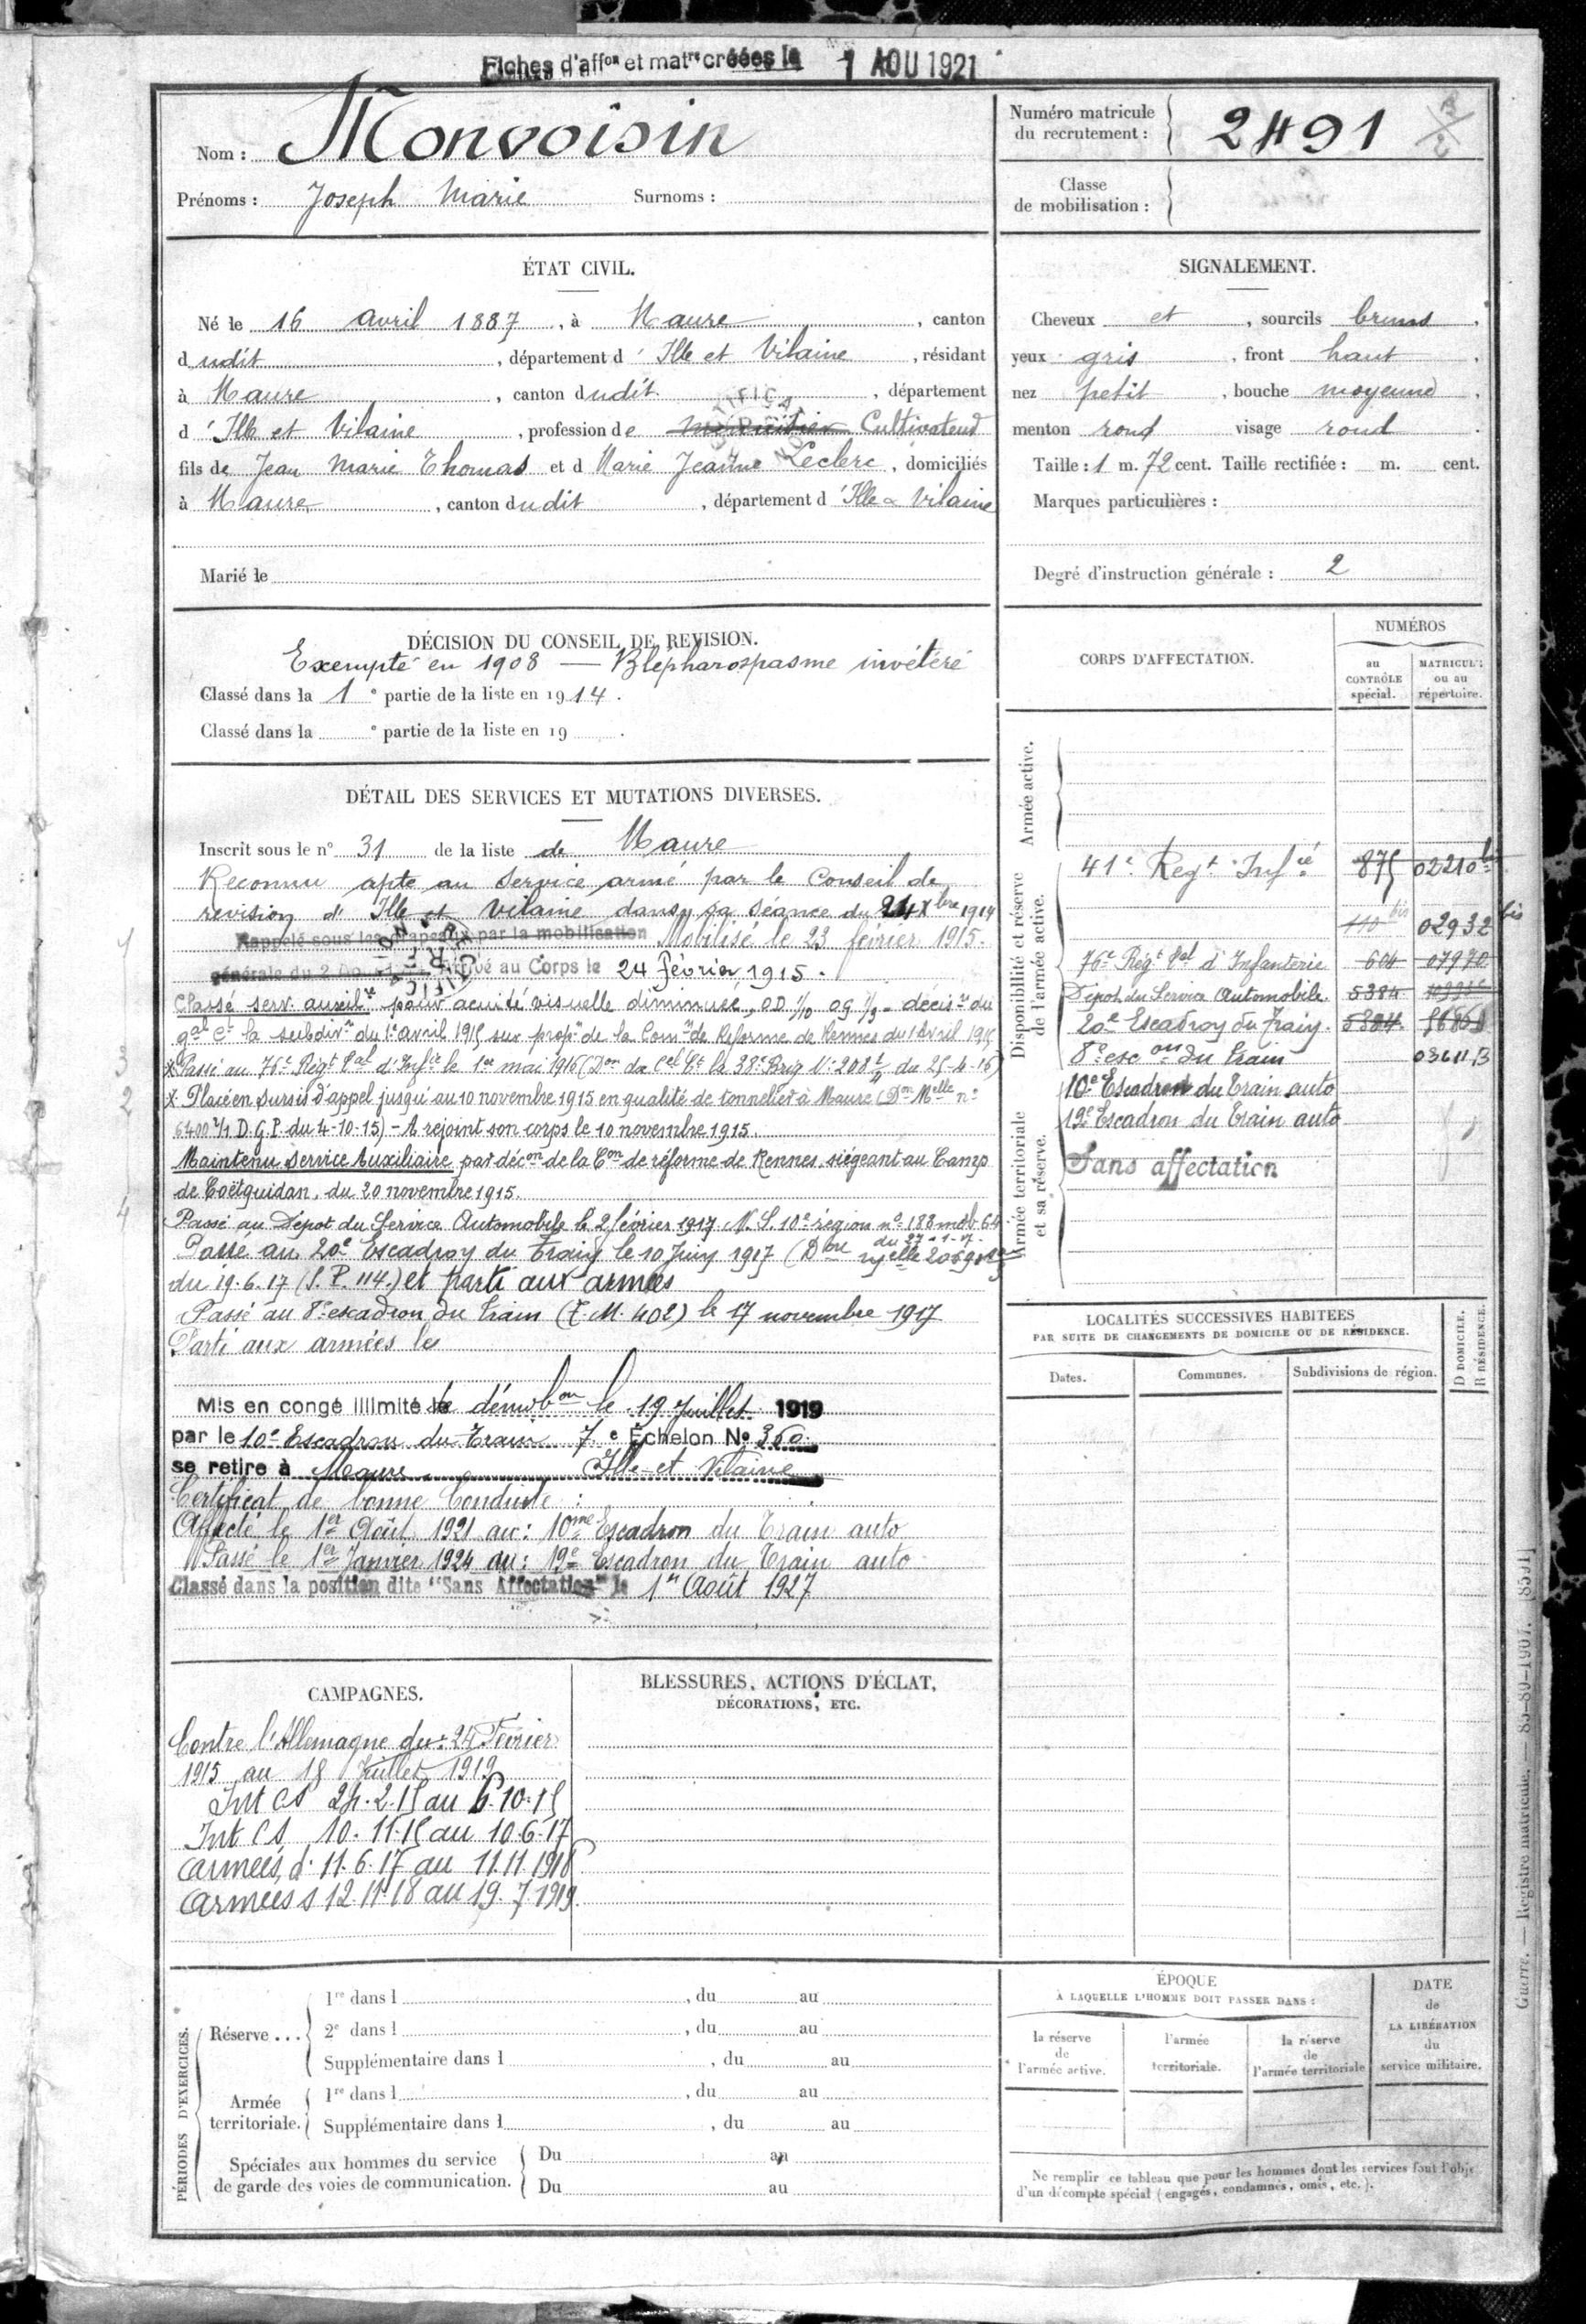 Fiches d'aff^on et mat^re créées le 1 AOU 1921
Nom : Monvoisin
Prénoms : Joseph Marie Surnoms :
Numéro matricule
du recrutement : 2491
Classe
de mobilisation :
ÉTAT CIVIL.
Né le 16 avril 1887, à Maure, canton
dudit, département d'Ille et Vilaine, résidant
à Maure, canton dudit, département
d'Ille et Vilaine, profession de Cultivateur
fils de Jean Marie Thomas et d Marie Jeanne Leclerc, domiciliés
à Maure, canton dudit, département d'Ille & Vilaine
Marié le
SIGNALEMENT.
Cheveux et, sourcils bruns,
yeux gris, front haut,
nez petit, bouche moyenne,
menton rond visage rond.
Taille : 1 m. 72 cent. Taille rectifiée : m. cent.
Marques particulières :
Degré d'instruction générale : 2
DÉCISION DU CONSEIL DE REVISION.
Exempté en 1908 — Blépharospasme invétéré
Classé dans la 1e partie de la liste en 1914.
Classé dans la e partie de la liste en 19 .
DÉTAIL DES SERVICES ET MUTATIONS DIVERSES.
Inscrit sous le n° 31 de la liste de Maure
Reconnu apte au service armé par le Conseil de
revision d'Ille et Vilaine dans sa séance du 24 Xbre 1914
Rappelé sous les drapeaux par la mobilisation Mobilisé le 23 février 1915.
générale du 2 Arrivé au Corps le 24 Février 1915.
Classé serv. auxil^re pour acuité visuelle diminuée, OD 1/10 OG 1/3 = décis^n du
g^al C^t la subdiv^n du 1er avril 1915 sur prop^n de la Com^on de Réforme de Rennes du 1 avril 1915
x Passé au 76e Régt Tal d'Infie le 1er mai 1916 (Don du Cel Ct la 38e Brig N° 208 du 25-4-16)
x Placé en sursis d'appel jusqu'au 10 novembre 1915 en qualité de tonnelier à Maure (Don Melle n°
6400 2/1 D.G.P. du 4-10-15) - A rejoint son corps le 10 novembre 1915.
Maintenu Service Auxiliaire par décon de la Con de réforme de Rennes siégeant au Camp
de Coëtquidan, du 20 novembre 1915.
Passé au Dépot du Service Automobile le 2 février 1917 N.S. 10e région n° 188 mob. 64
du 27-1-17.
Passé au 20e Escadron du Train le 10 Juin 1917 (Don
du 19.6.17 (S.P. 114.) et parti aux armées
Passé au 8e escadron du train (T.M. 402) le 17 novembre 1917
Parti aux armées le
Mis en congé illimité de démobon le 19 Juillet 1919
par le 10e Escadron du Train 7e Échelon No 360.
se retire à Maure Ille et Vilaine
Certificat de bonne Conduite :
Affecté le 1er Août 1921 au : 10me Escadron du Train auto
Passé le 1er Janvier 1924 au : 19e Escadron du Train auto
Classé dans la position dite "Sans Affectation" le 1er Août 1927
CORPS D'AFFECTATION.
NUMÉROS
au
CONTRÔLE
spécial.
MATRICULE
ou au
répertoire.
Armée active.
Disponibilité et réserve
de l'armée active.
41e Regt Infie 875 02210 bis
110 bis 02932 bis
76e Régt Tal d'Infanterie 604 07970
Dépot du Service Automobile. 5384
20e Escadron du Train. 5384
8e escon du train 03611 B
10e Escadron du Train auto
19e Escadron du Train auto
Armée territoriale
et sa réserve.
Sans affectation
LOCALITÉS SUCCESSIVES HABITÉES
PAR SUITE DE CHANGEMENTS DE DOMICILE OU DE RÉSIDENCE.
Dates. Communes. Subdivisions de région.
D DOMICILE.
R RÉSIDENCE.
CAMPAGNES.
Contre l'Allemagne du : 24 Février
1915 au 18 Juillet 1919
Int CS 24.2.15 au 6.10.15
Int CS 10.11.15 au 10.6.17
Armées d. 11.6.17 au 11.11.1918
Armées s 12.11.18 au 19.7.1919.
BLESSURES, ACTIONS D'ÉCLAT,
DÉCORATIONS, ETC.
PÉRIODES D'EXERCICES.
Réserve ...
1re dans l , du au
2e dans l , du au
Supplémentaire dans l , du au
Armée
territoriale.
1re dans l , du au
Supplémentaire dans l , du au
Spéciales aux hommes du service
de garde des voies de communication.
Du au
Du au
ÉPOQUE
À LAQUELLE L'HOMME DOIT PASSER DANS :
la réserve
de
l'armée active.
l'armée
territoriale.
la réserve
de
l'armée territoriale
DATE
de
LA LIBÉRATION
du
service militaire.
Ne remplir ce tableau que pour les hommes dont les services font l'obje
d'un décompte spécial (engagés, condamnés, omis, etc.).
Guerre. — Registre matricule. — 85-80-1907. [8591]